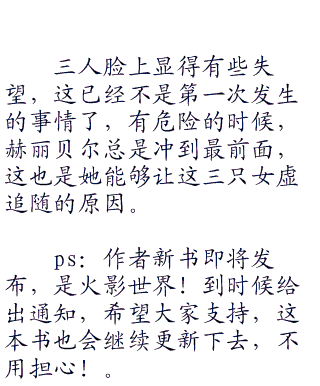 三人脸上显得有些失
望，这已经不是第一次发生
的事情了，有危险的时候，
赫丽贝尔总是冲到最前面，
这也是她能够让这三只女虚
追随的原因。
ps：作者新书即将发
布，是火影世界！到时候给
出通知，希望大家支持，这
本书也会继续更新下去，不
用担心！。